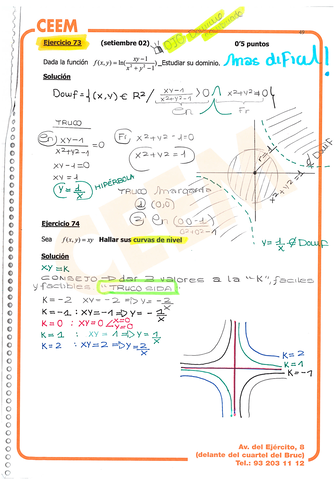 CEEM
Ejercicio 73 (setiembre 02) 0'5 puntos
Dada la función f(x,y) = ln((xy-1)/(x²+y²-1)). Estudiar su dominio. ¡mas dificil!
Solución
Domf = {(x,y) ∈ R² / (xy-1)/(x²+y²-1) > 0 ∧ x²+y²-1 ≠ 0}
en Fr
TRUCO
en) (xy-1)/(x²+y²-1) = 0
Fr, x²+y²-1=0
xy-1=0
x²+y²=1
xy=1
y=1/x HIPÉRBOLA
TRUCO margarita
1 (0,0)
2 en (0·0-1)/(0²+0²-1)
r=1
x²+y²=1
Domf
y=1/x ∉ Domf
Ejercicio 74
Sea f(x,y) = xy Hallar sus curvas de nivel
Solución
xy=K
CONSEJO → dar 2 valores a la "K", fáciles
y factibles "TRUCO CIDA"
K=-2 xy=-2 ⇒ y=-2/x
K=-1 : xy=-1 ⇒ y=-1/x
K=0 : xy=0 x=0 y=0
K=1 : xy=1 ⇒ y=1/x
K=2 : xy=2 ⇒ y=2/x
K=2
K=1
K=-1
Av. del Ejército, 8
(delante del cuartel del Bruc)
Tel.: 93 203 11 12